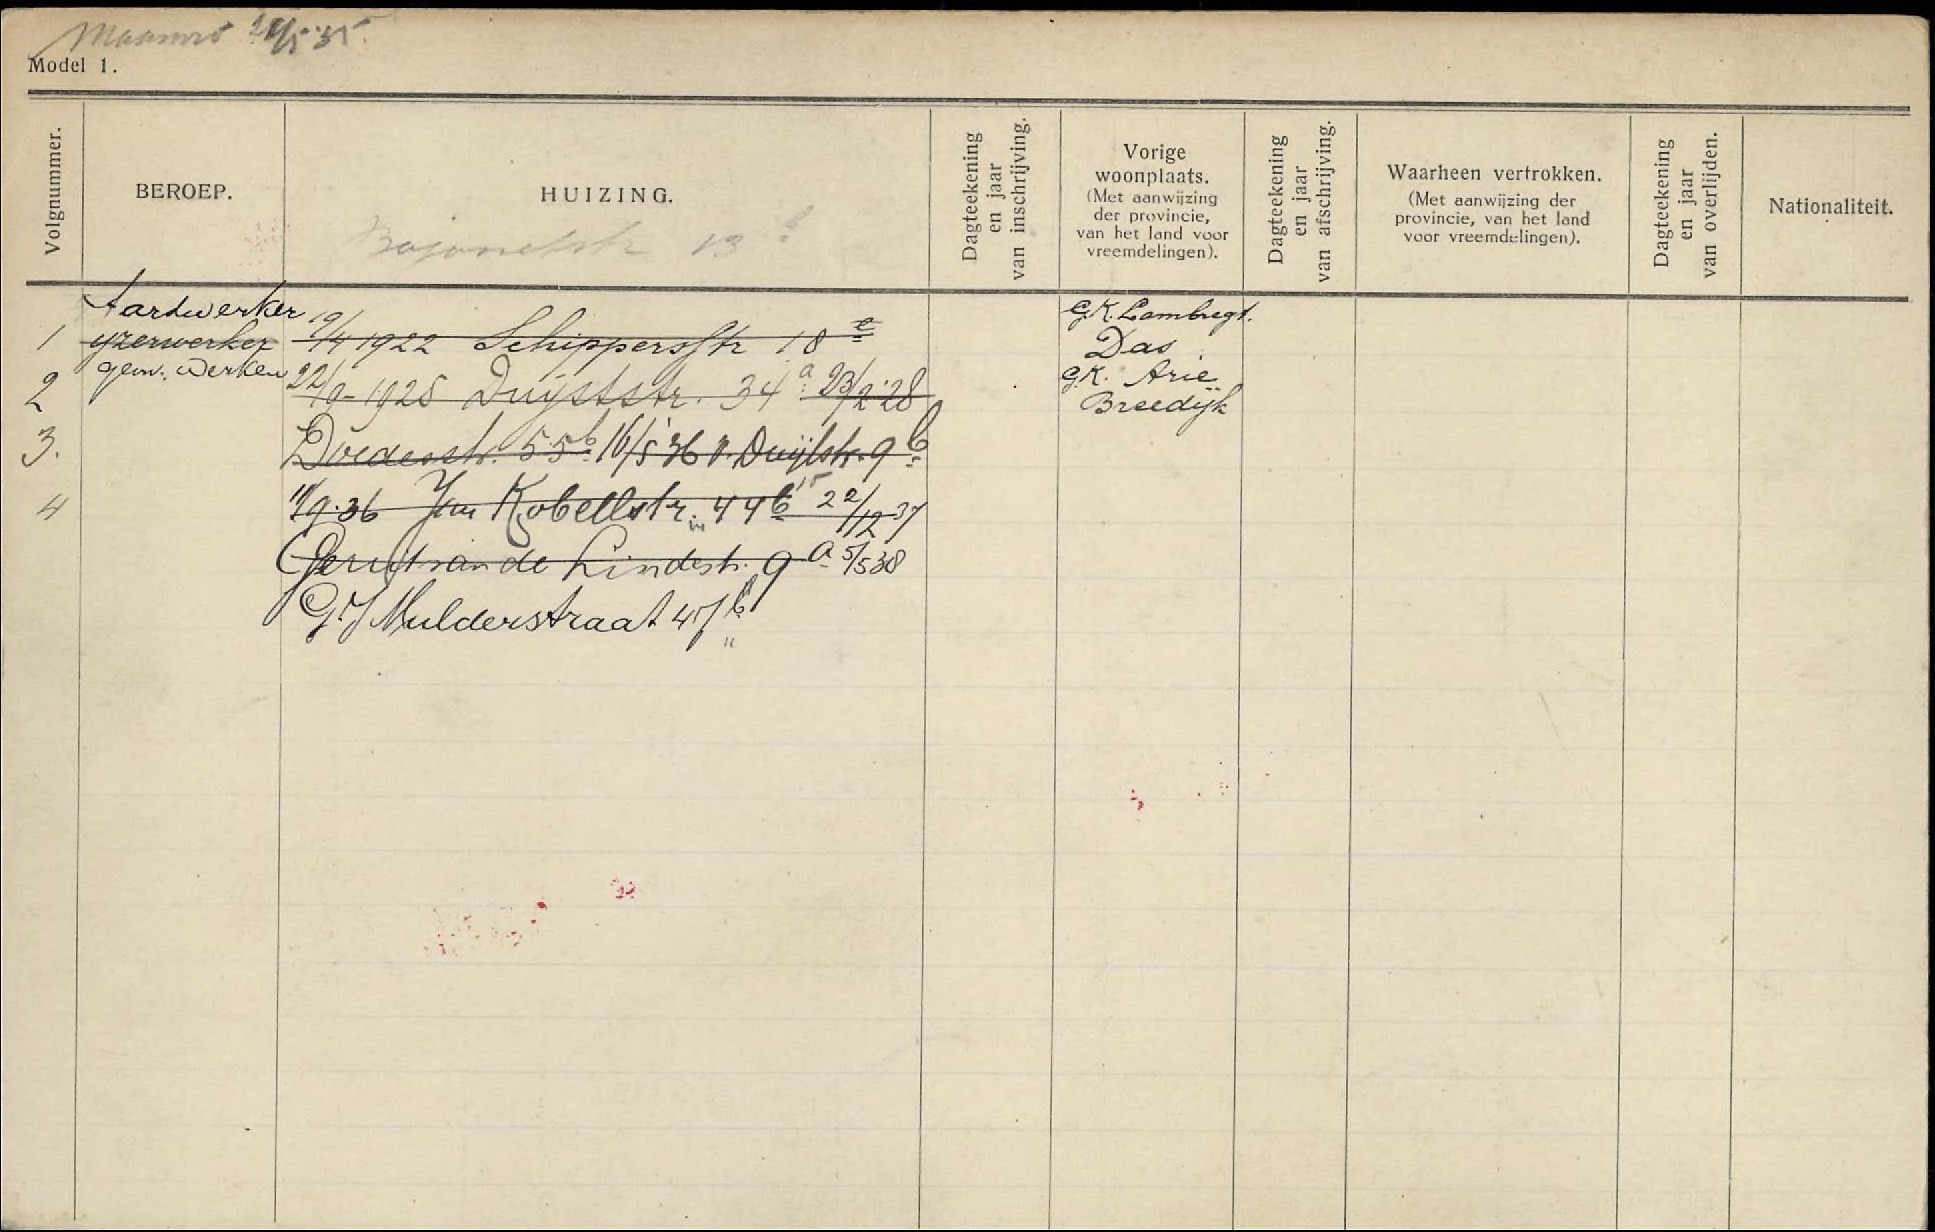 21/5 '35.
Model 1.
Volgnummer.
BEROEP.
HUIZING.
Dagteekening
en jaar
van inschrijving.
Vorige
woonplaats.
(Met aanwijzing
der provincie,
van het land voor
vreemdelingen).
Dagteekening
en jaar
van afschrijving.
Waarheen vertrokken.
(Met aanwijzing der
provincie, van het land
voor vreemdelingen).
Dagteekening
en jaar
van overlijden.
Nationaliteit.
Bajonetstr 13 b
Aardwerker
1 ijzerwerker 19/4 1922 Schippersstr 18 e
gew. werken
2 22/9-1925 Duijststr. 34 a 23/2 '28
3. Doedesstr. 55 b 16/5 36 v. Duijlstr. 9 b
4 11/9.36 Jan Kobellstr. 44 b 22/12 37
Gerrit van de Lindestr. 9 a 5/5 38
G. J. Mulderstraat 45 b
G.K. Lambregt.
Das
G.K. Arie
Breedijk